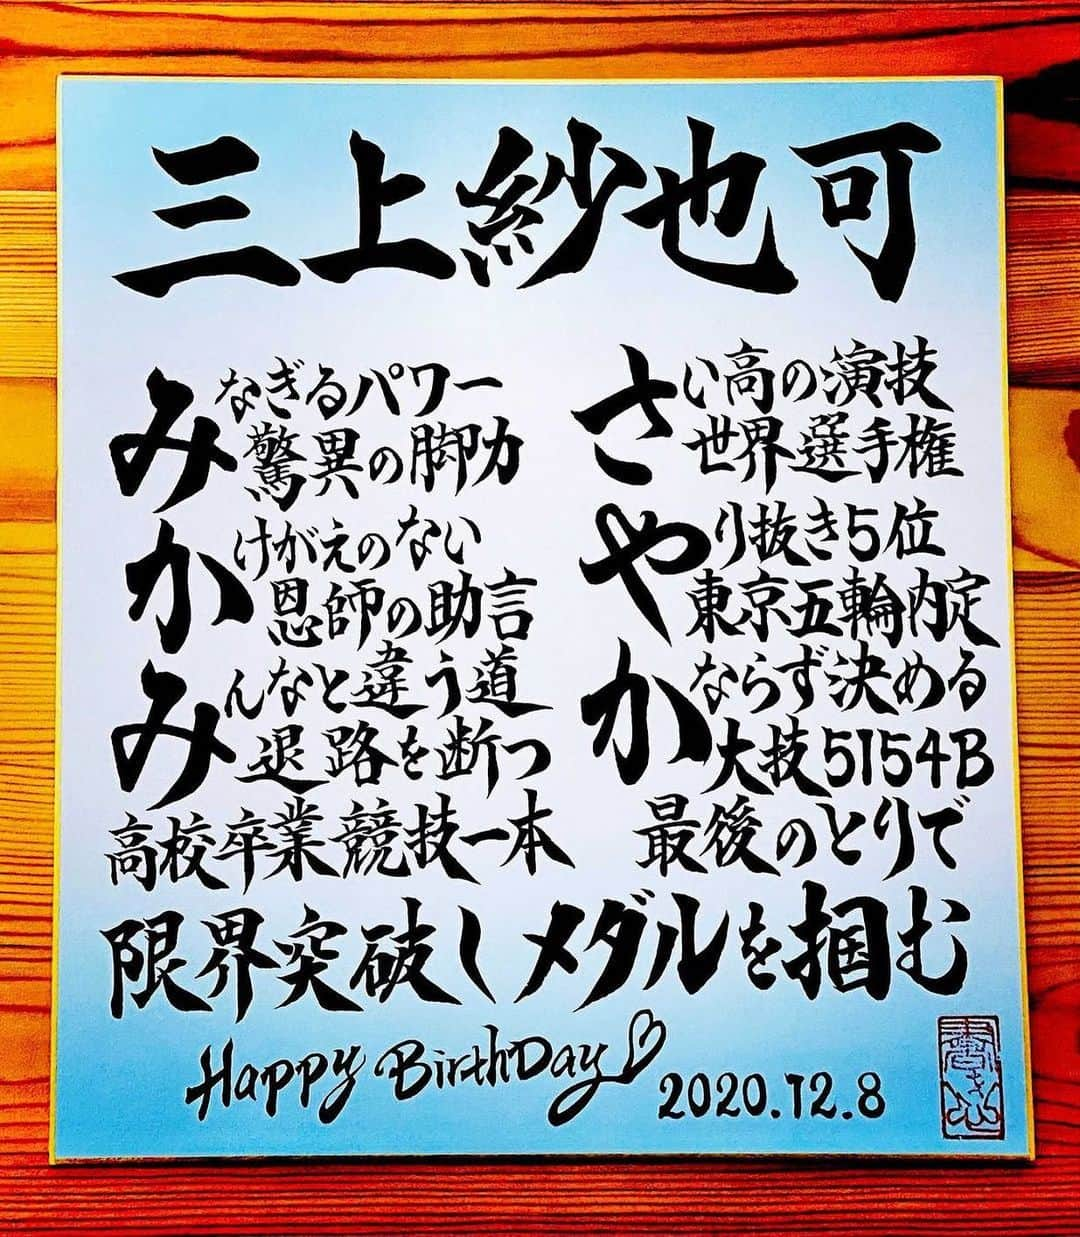 三上紗也可
みなぎるパワー
驚異の脚力
かけがえのない
恩師の助言
みんなと違う道
退路を断つ
高校卒業競技一本
さい高の演技
世界選手権
やり抜き5位
東京五輪内定
かならず決める
大技5154B
最後のとりで
限界突破しメダルを掴む
Happy BirthDay
2020.12.8